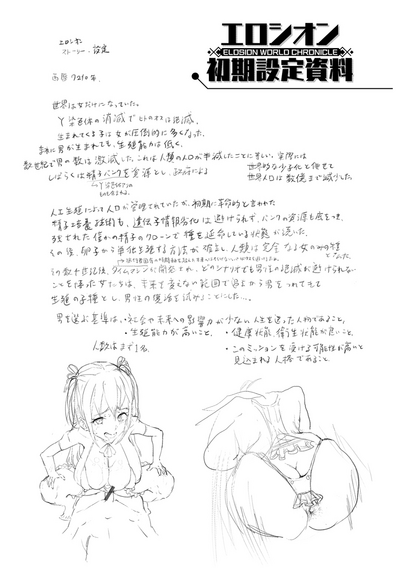 エロシオン
ELOSION WORLD CHRONICLE
初期設定資料
エロシオン
ストーリー、設定
西暦9210年。
世界は女だけになっていた。
Y染色体の消滅でヒトのオスは
生まれてくる子は女が圧倒的に多くなった。
男が生まれても、生殖能力は低く、
数世紀で男の数は激減した。これは人類の人口が半減したことに等しい。実際には
世界的な少子化と併せて
しばらくは精子バンクを資源とし、政府による
世界人口は数億まで減少した。
人工生殖によって人口が管理されていたが、初期に革命的と言われた
精子培養技術も、遺伝子情報劣化は避けられず、バンクの資源も底をつき、
残された僅かの精子のクローンで種を延命している状態が続いた。
その後、卵子から単独生殖する方法が確立し、人類は完全なる女のみの種
となった。
その数十世紀後、タイムマシンが開発され、どのシナリオでも男性の消滅が避けられない
ことを悟った女たちは、未来を変えない範囲で過去から男をつれてきて
生殖の子種とし、男性の復活を試みることにした…。
男を選ぶ基準は、・社会や未来への影響力が少ない人生を送った人物であること。
・生殖能力が高いこと。
・健康状態、衛生状態が良いこと。
人数はまず1名
・このミッションを受ける可能性が高いと
見込まれる人格であること。